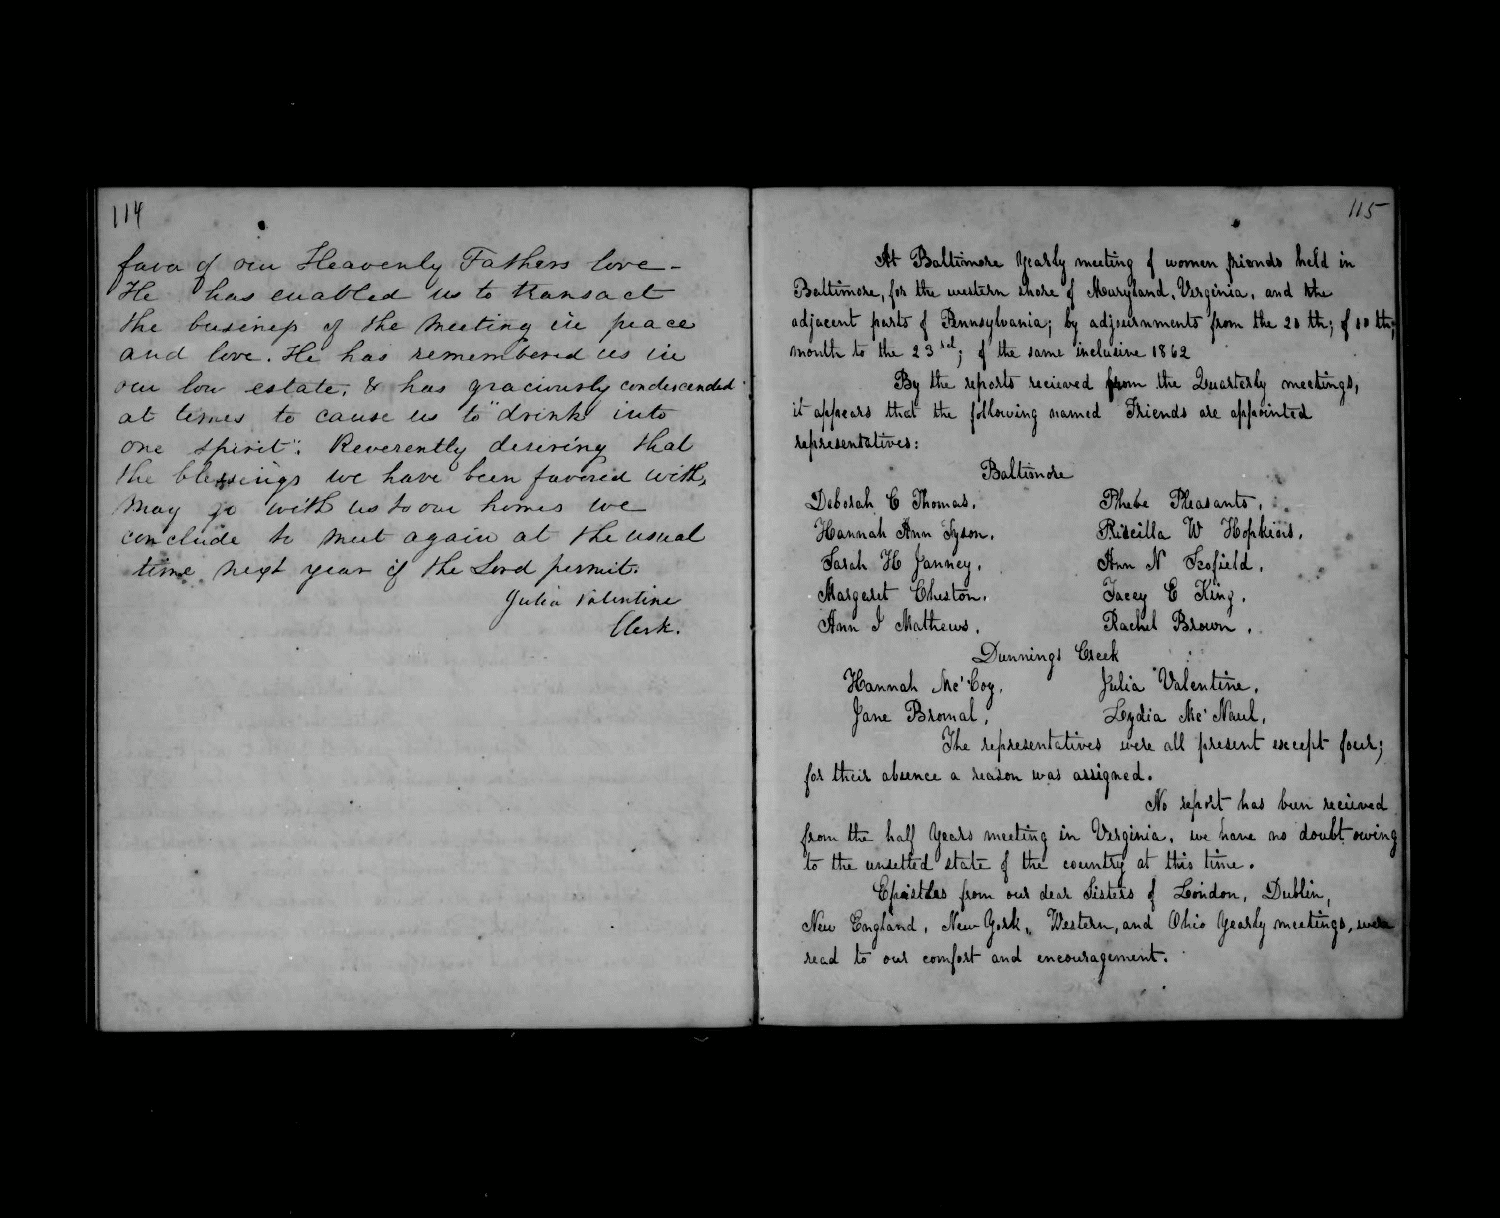 114
favor of our Heavenly Fathers love -
He has enabled us to transact
the business of the meeting in peace
and love. He has remembered us in
our low estate, & has graciously condescended
at times to cause us to "drink into
one spirit". Reverently desiring that
the blessings we have been favored with,
may go with us to our homes we
conclude to meet again at the usual
time next year if the Lord permit.
Julia Valentine
Clerk.
115
At Baltimore Yearly meeting of women friends held in
Baltimore, for the western shore of Maryland, Virginia, and the
adjacent parts of Pennsylvania; by adjournments from the 20 th; of 10 th;
month to the 23 rd; of the same inclusive 1862
By the reports recieved from the Quarterly meetings,
it appears that the following named Friends are appointed
representatives:
Baltimore
Deborah C Thomas. Phebe Pleasants.
Hannah Ann Tyson. Priscilla W Hopkins.
Sarah H Janney. Ann N Scofield.
Margaret Cheston. Tacey E King.
Ann I Mathews. Rachel Brown.
Dunnings Creek
Hannah Mc'Coy. Julia Valentine.
Jane Bromal. Lydia Mc'Naul.
The representatives were all present except four;
for their absence a reason was assigned.
No report has been recieved
from the half Years meeting in Virginia, we have no doubt owing
to the unsetted state of the country at this time.
Epistles from our dear Sisters of London, Dublin,
New England, New York, Western, and Ohio Yearly meetings, were
read to our comfort and encouragement.